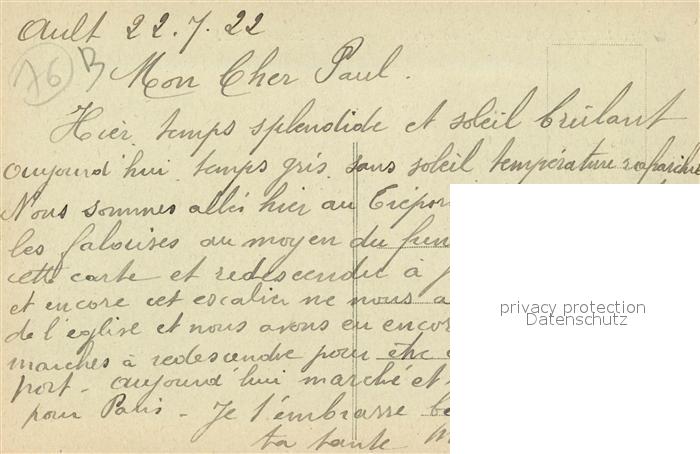 Ault 22.7.22
76 B
Mon Cher Paul.
Hier temps splendide et soleil brûlant
aujourd'hui temps gris sans soleil température rafraichie
Nous sommes allés hier au Trépor
les falaises au moyen du fun
cette carte et redescendu à
et encore cet escalier ne nous a
de l'église et nous avons eu encor
marches à redescendre pour être
port - aujourd'hui marché et
pour Paris - Je t'embrasse
ta tante
privacy protection
Datenschutz